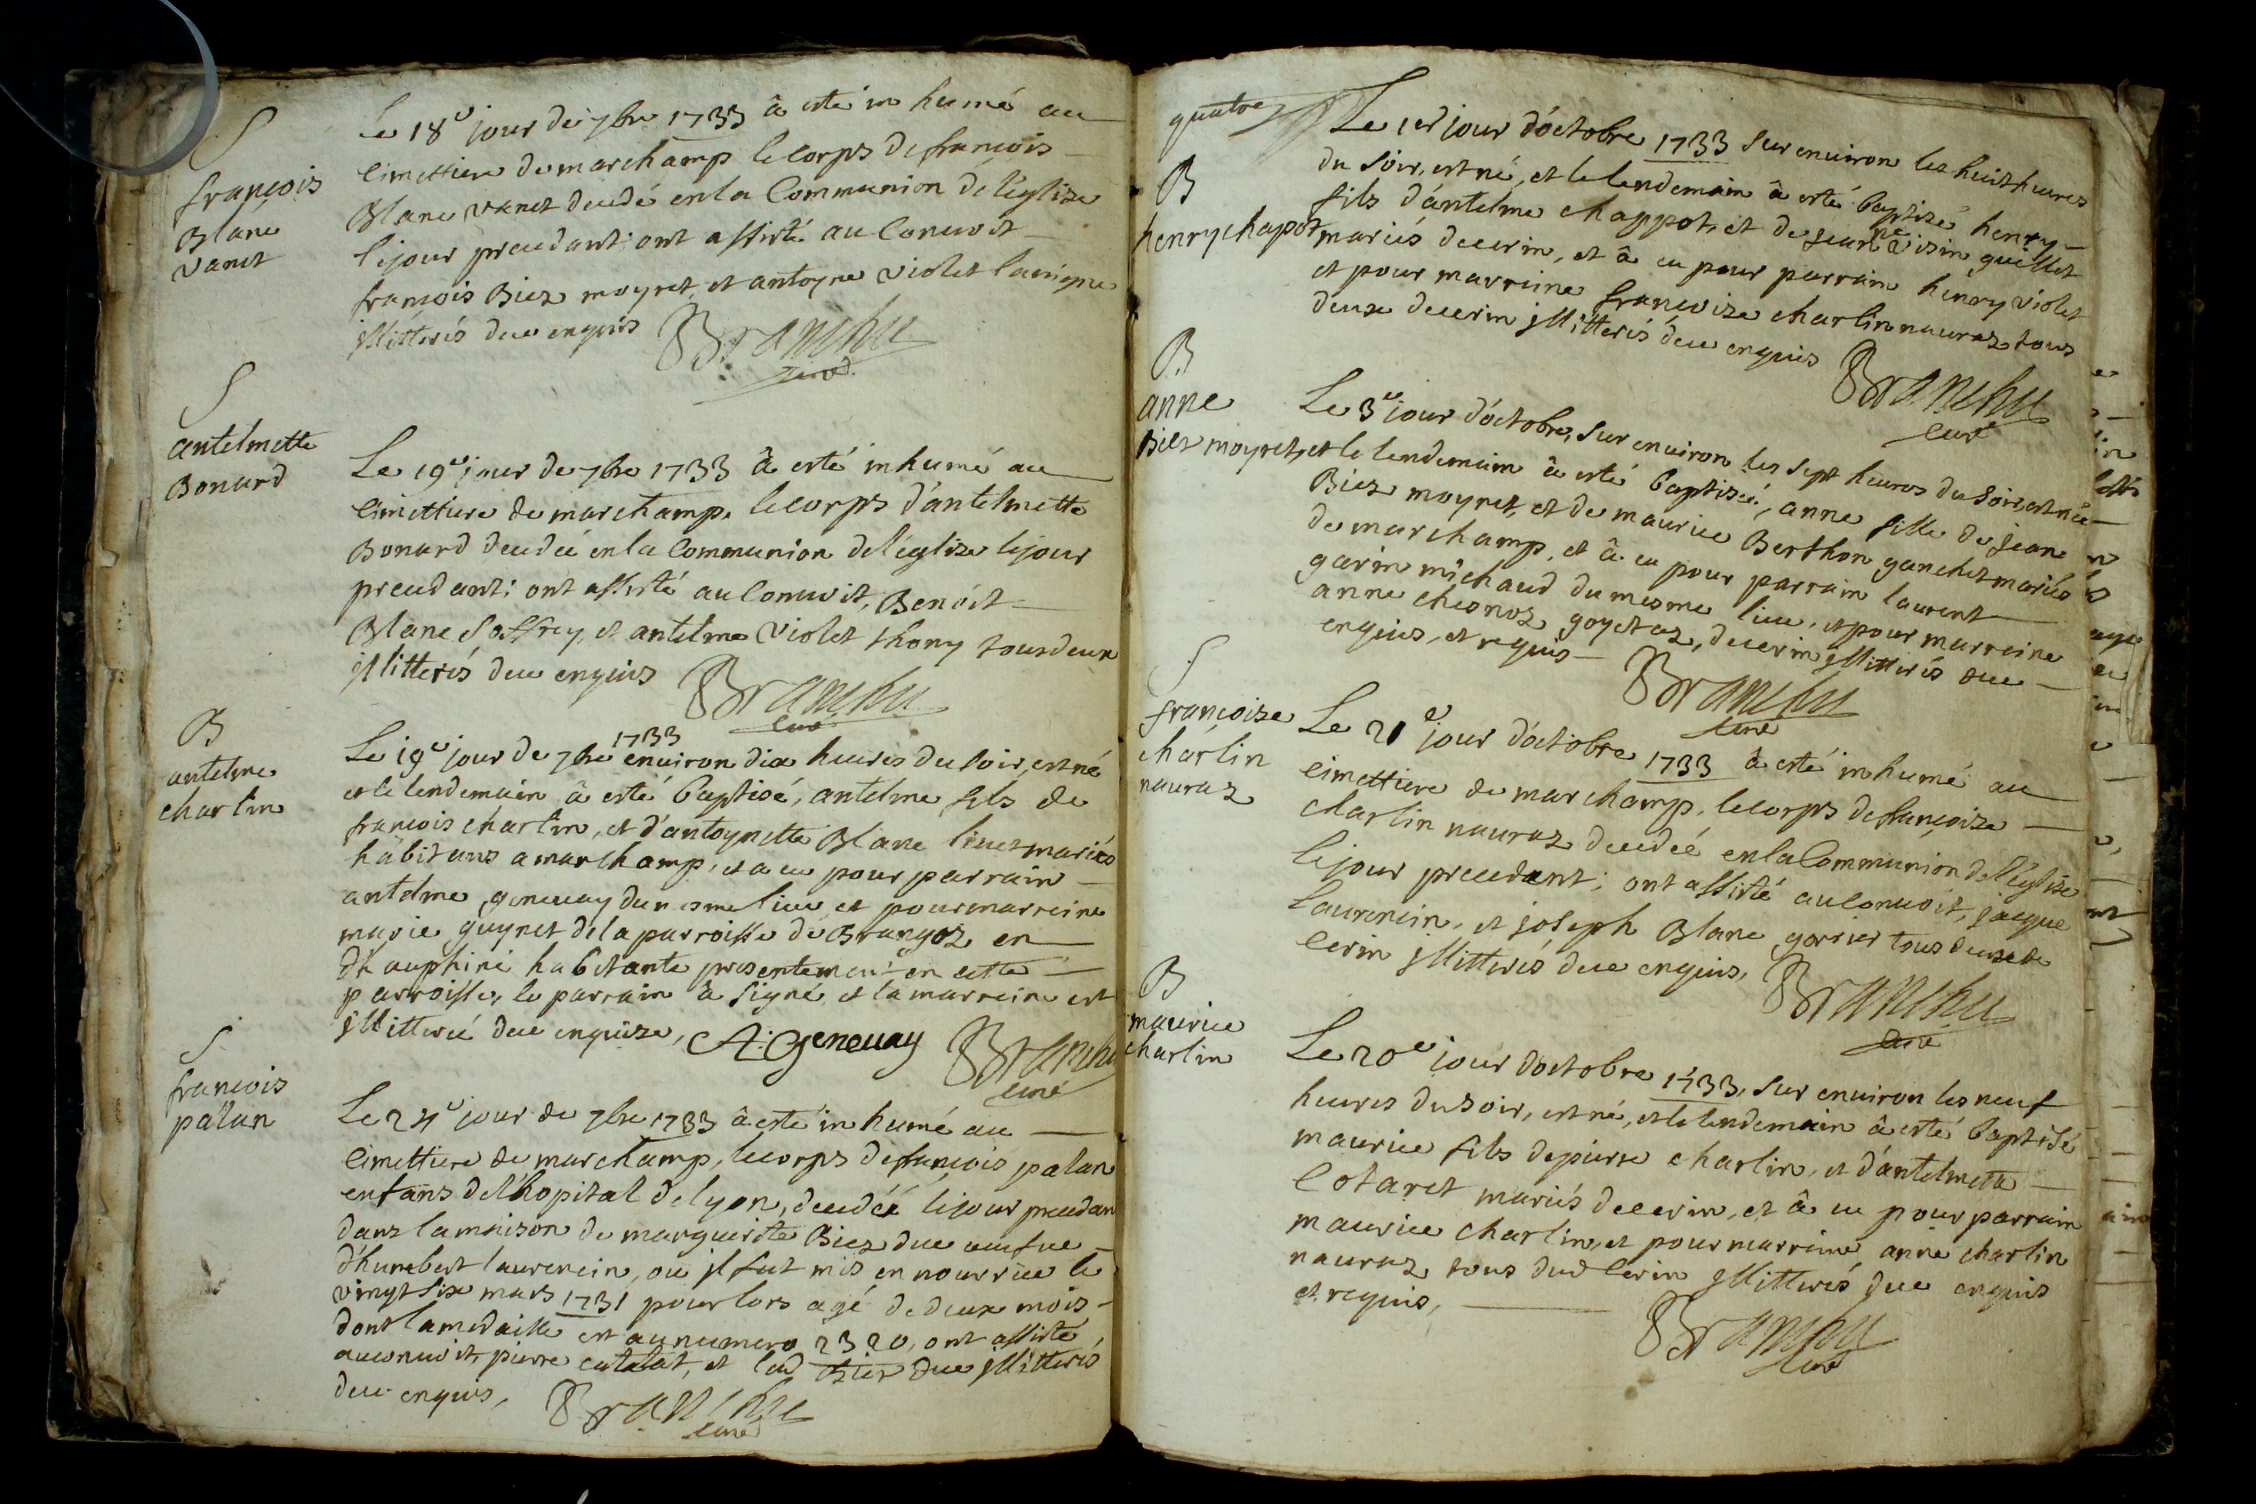 S
françois
Blanc
vanet
Le 18e jour de 7bre 1733 â esté inhumé au
Cimettiere de marchamp le corps de françois
Blanc vanet decedé en la Communion de l'église
le jour precedant: ont assisté au Convoit
françois Biez moyret, et antoyne violet lavigne
illitterés de ce enquis Branchu
curé
S
antelmette
Bonard
Le 19e jour de 7bre 1733 â esté inhumé au
Cimettiere de marchamp, le corps d'antelmette
Bonard decedée en la Communion de l'église le jour
precedant: ont assisté au Convoit, Benoit
Blanc Joffrey, et antelme violet thony tous deux
illitterés de ce enquis Branchu
curé
B
antelme
charlin
Le 19e jour de 7bre 1733 environ dix heures du soir, est né
et le lendemain â esté baptisé, antelme fils de
françois charlin, et d'antoynette Blanc linet mariés
habitans a marchamp, et a eu pour parrain
antelme genevay du mesme lieu et pour marreine
marie guynet de la parroisse de Brangoz en
dhauphiné habitante presentement en cette
parroisse, le parrain â signé et la marreine est
illitterée de ce enquise, A: Genevay Branchu
curé
S
françois
palan
Le 24e jour de 7bre 1733 â esté inhumé au
Cimettiere de marchamp, le corps de françois palan
enfans de l'hopital de lyon, decedéé le jour precedan
dans la maison de marguerite Biez due veufve
d'humbert laurencin, ou il fut mis en nourrice le
vingt six mars 1731 pour lors agé de deux mois
dont la medaille est au numero 2320, ont assisté
au convoit, pierre catelat, et lad Biez due illitterés
de ce enquis, Branchu
curé
quatre
B
henry chapot
Le 1er jour d'octobre 1733 sur environ les huit heures
du soir, est né, et le lendemain â esté baptisé henry
fils d'antelme chappot, et de jeanne visin quellet
mariés de cerin, et â eu pour parrain henry violet
et pour marreine françoize charlin nauraz, tous
deux de cerin illitterés de ce enquis Branchu
curé
B
anne
Biez moyret
Le 3e jour d'octobre, sur environ les sept heures du soir, est née
et le lendemain â esté baptisée, anne fille de jean
Biez moyret, et de maurice Berthon ganchet mariés
de marchamp, et â eu pour parrain laurent
garin michaud du mesme lieu, et pour marreine
anne chesnoz goyetaz, de cerin illitterés de ce
enquis, et requis Branchu
curé
S
françoize
charlin
nauraz
Le 21e jour d'octobre 1733 â esté inhumé au
Cimettiere de marchamp, le corps de françoize
charlin nauraz decedéé en la Communion de l'église
le jour precedant; ont assisté au Convoit, jacque
Laurencin, et joseph Blanc gorrier tous deux de
Cerin illitterés de ce enquis, Branchu
curé
B
maurice
charlin
Le 20e jour d'octobre 1733, sur environ les neuf
heures du soir, est né, et le lendemain â esté baptisé
maurice fils de pierre charlin, et d'antelmette
Cotaret mariés de cerin, et â eu pour parrain
maurice charlin, et pour marreine anne charlin
nauraz tous dud Cerin illitterés de ce enquis
et requis, Branchu
curé